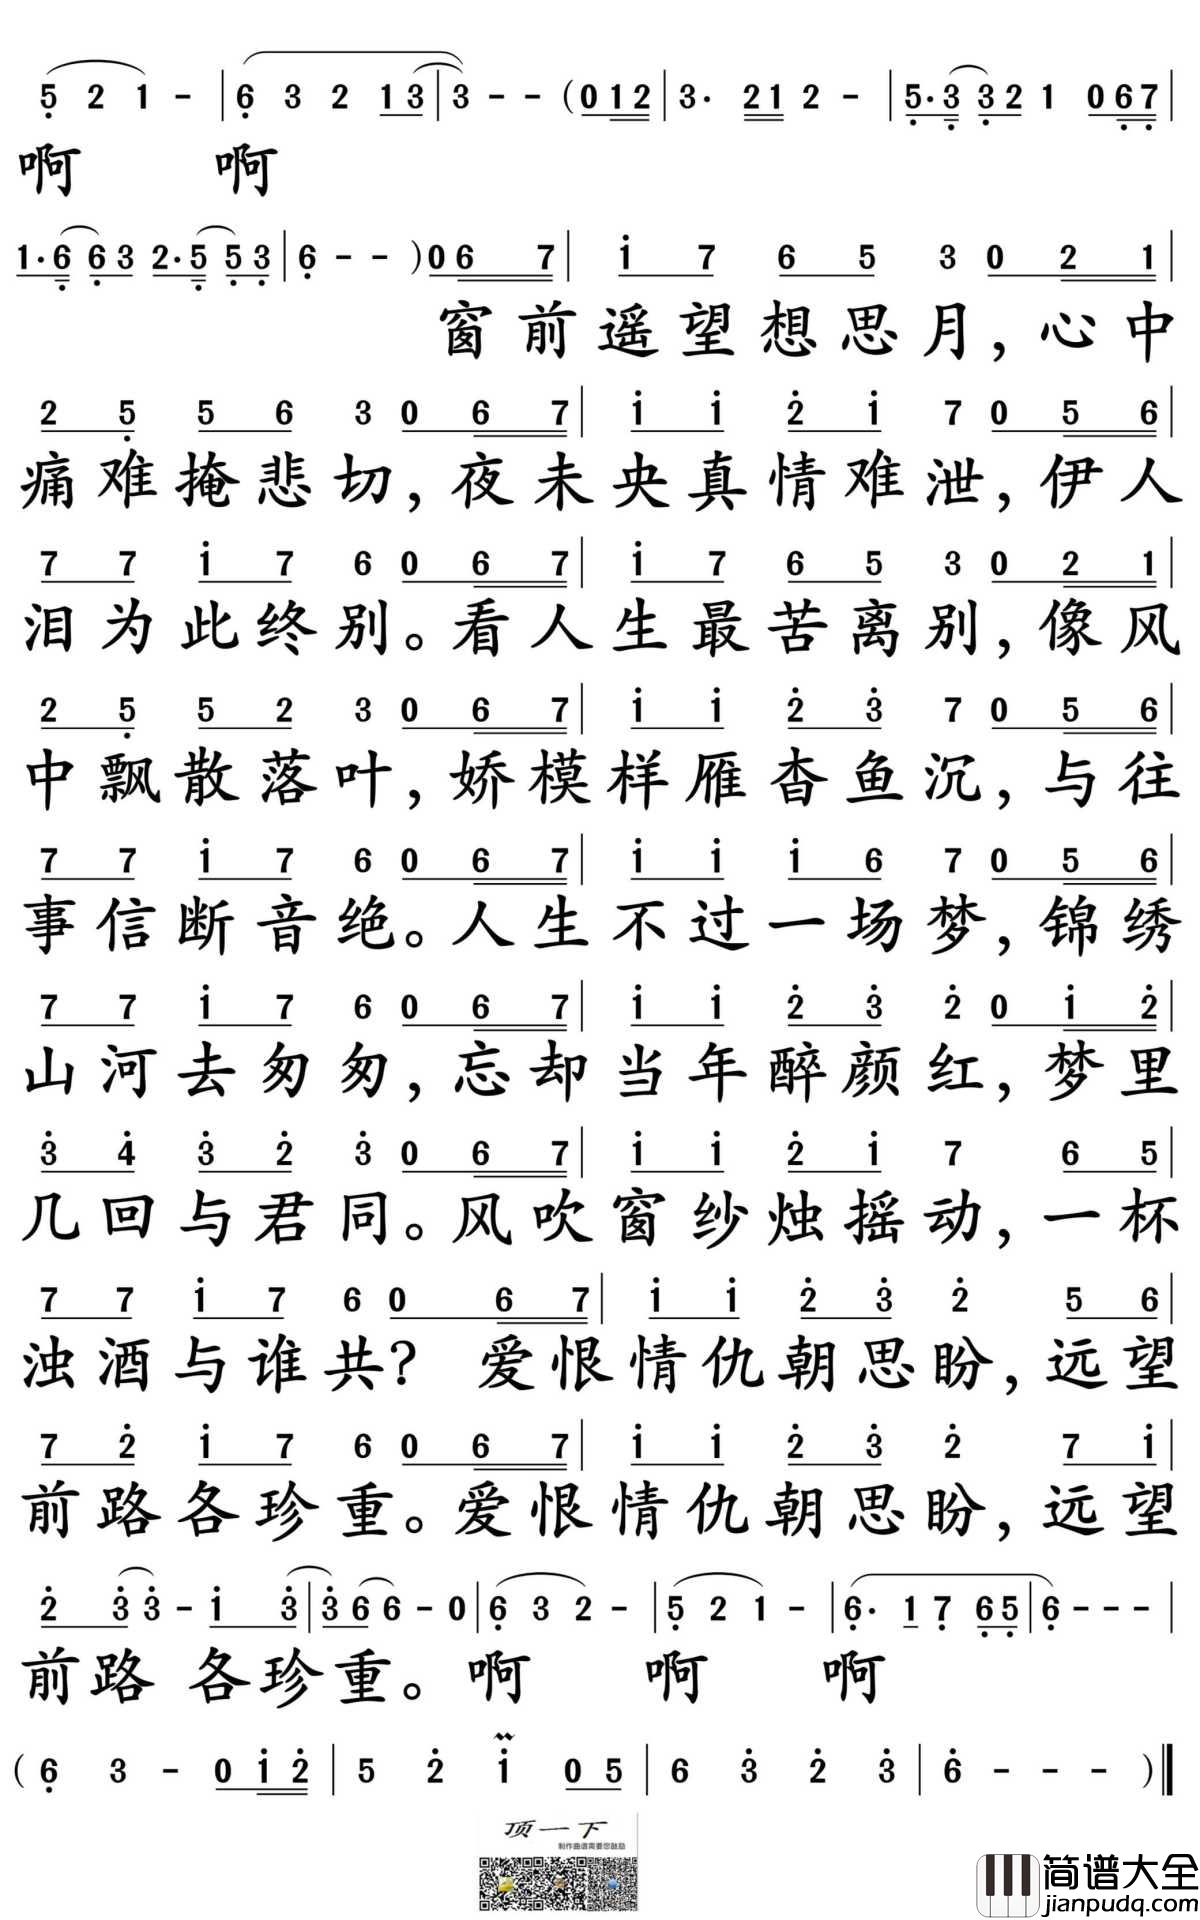 5 2 1 - | 6 3 2 1 3 | 3 - - ( 0 1 2 | 3 · 2 1 2 - | 5 · 3 3 2 1 0 6 7 |
啊 啊
1 · 6 6 3 2 · 5 5 3 | 6 - - ) 0 6 7 | i 7 6 5 3 0 2 1 |
窗前遥望想思月，心中
2 5 5 6 3 0 6 7 | i i 2 i 7 0 5 6 |
痛难掩悲切，夜未央真情难泄，伊人
7 7 i 7 6 0 6 7 | i 7 6 5 3 0 2 1 |
泪为此终别。看人生最苦离别，像风
2 5 5 2 3 0 6 7 | i i 2 3 7 0 5 6 |
中飘散落叶，娇模样雁杳鱼沉，与往
7 7 i 7 6 0 6 7 | i i i 6 7 0 5 6 |
事信断音绝。人生不过一场梦，锦绣
7 7 i 7 6 0 6 7 | i i 2 3 2 0 i 2 |
山河去匆匆，忘却当年醉颜红，梦里
3 4 3 2 3 0 6 7 | i i 2 i 7 6 5 |
几回与君同。风吹窗纱烛摇动，一杯
7 7 i 7 6 0 6 7 | i i 2 3 2 5 6 |
浊酒与谁共？ 爱恨情仇朝思盼，远望
7 2 i 7 6 0 6 7 | i i 2 3 2 7 i |
前路各珍重。爱恨情仇朝思盼，远望
2 3 3 - i 3 | 3 6 6 - 0 | 6 3 2 - | 5 2 1 - | 6 · 1 7 6 5 | 6 - - - |
前路 各珍重。啊 啊 啊
( 6 3 - 0 i 2 | 5 2 i 0 5 | 6 3 2 3 | 6 - - - ) ‖
顶一下
制作曲谱需要您鼓励
简谱大全
jianpudq.com